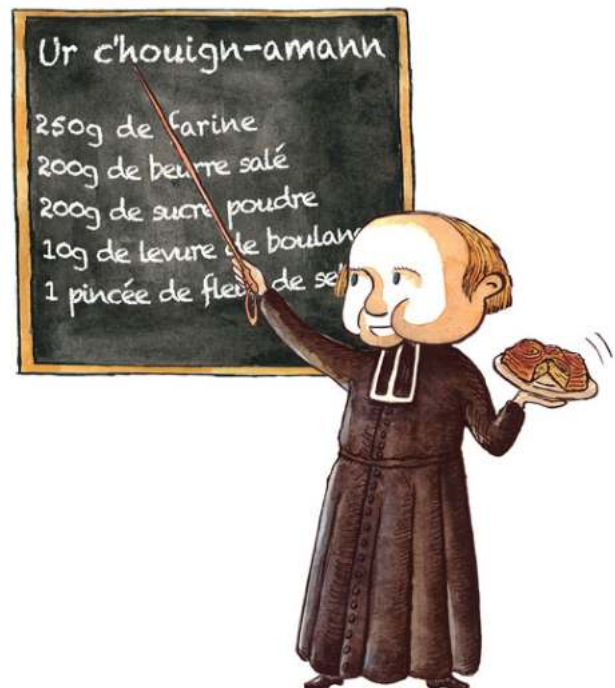 Ur c'houign-amann
250g de farine
200g de beurre salé
200g de sucre poudre
10g de levure de
1 pincée de fleur de